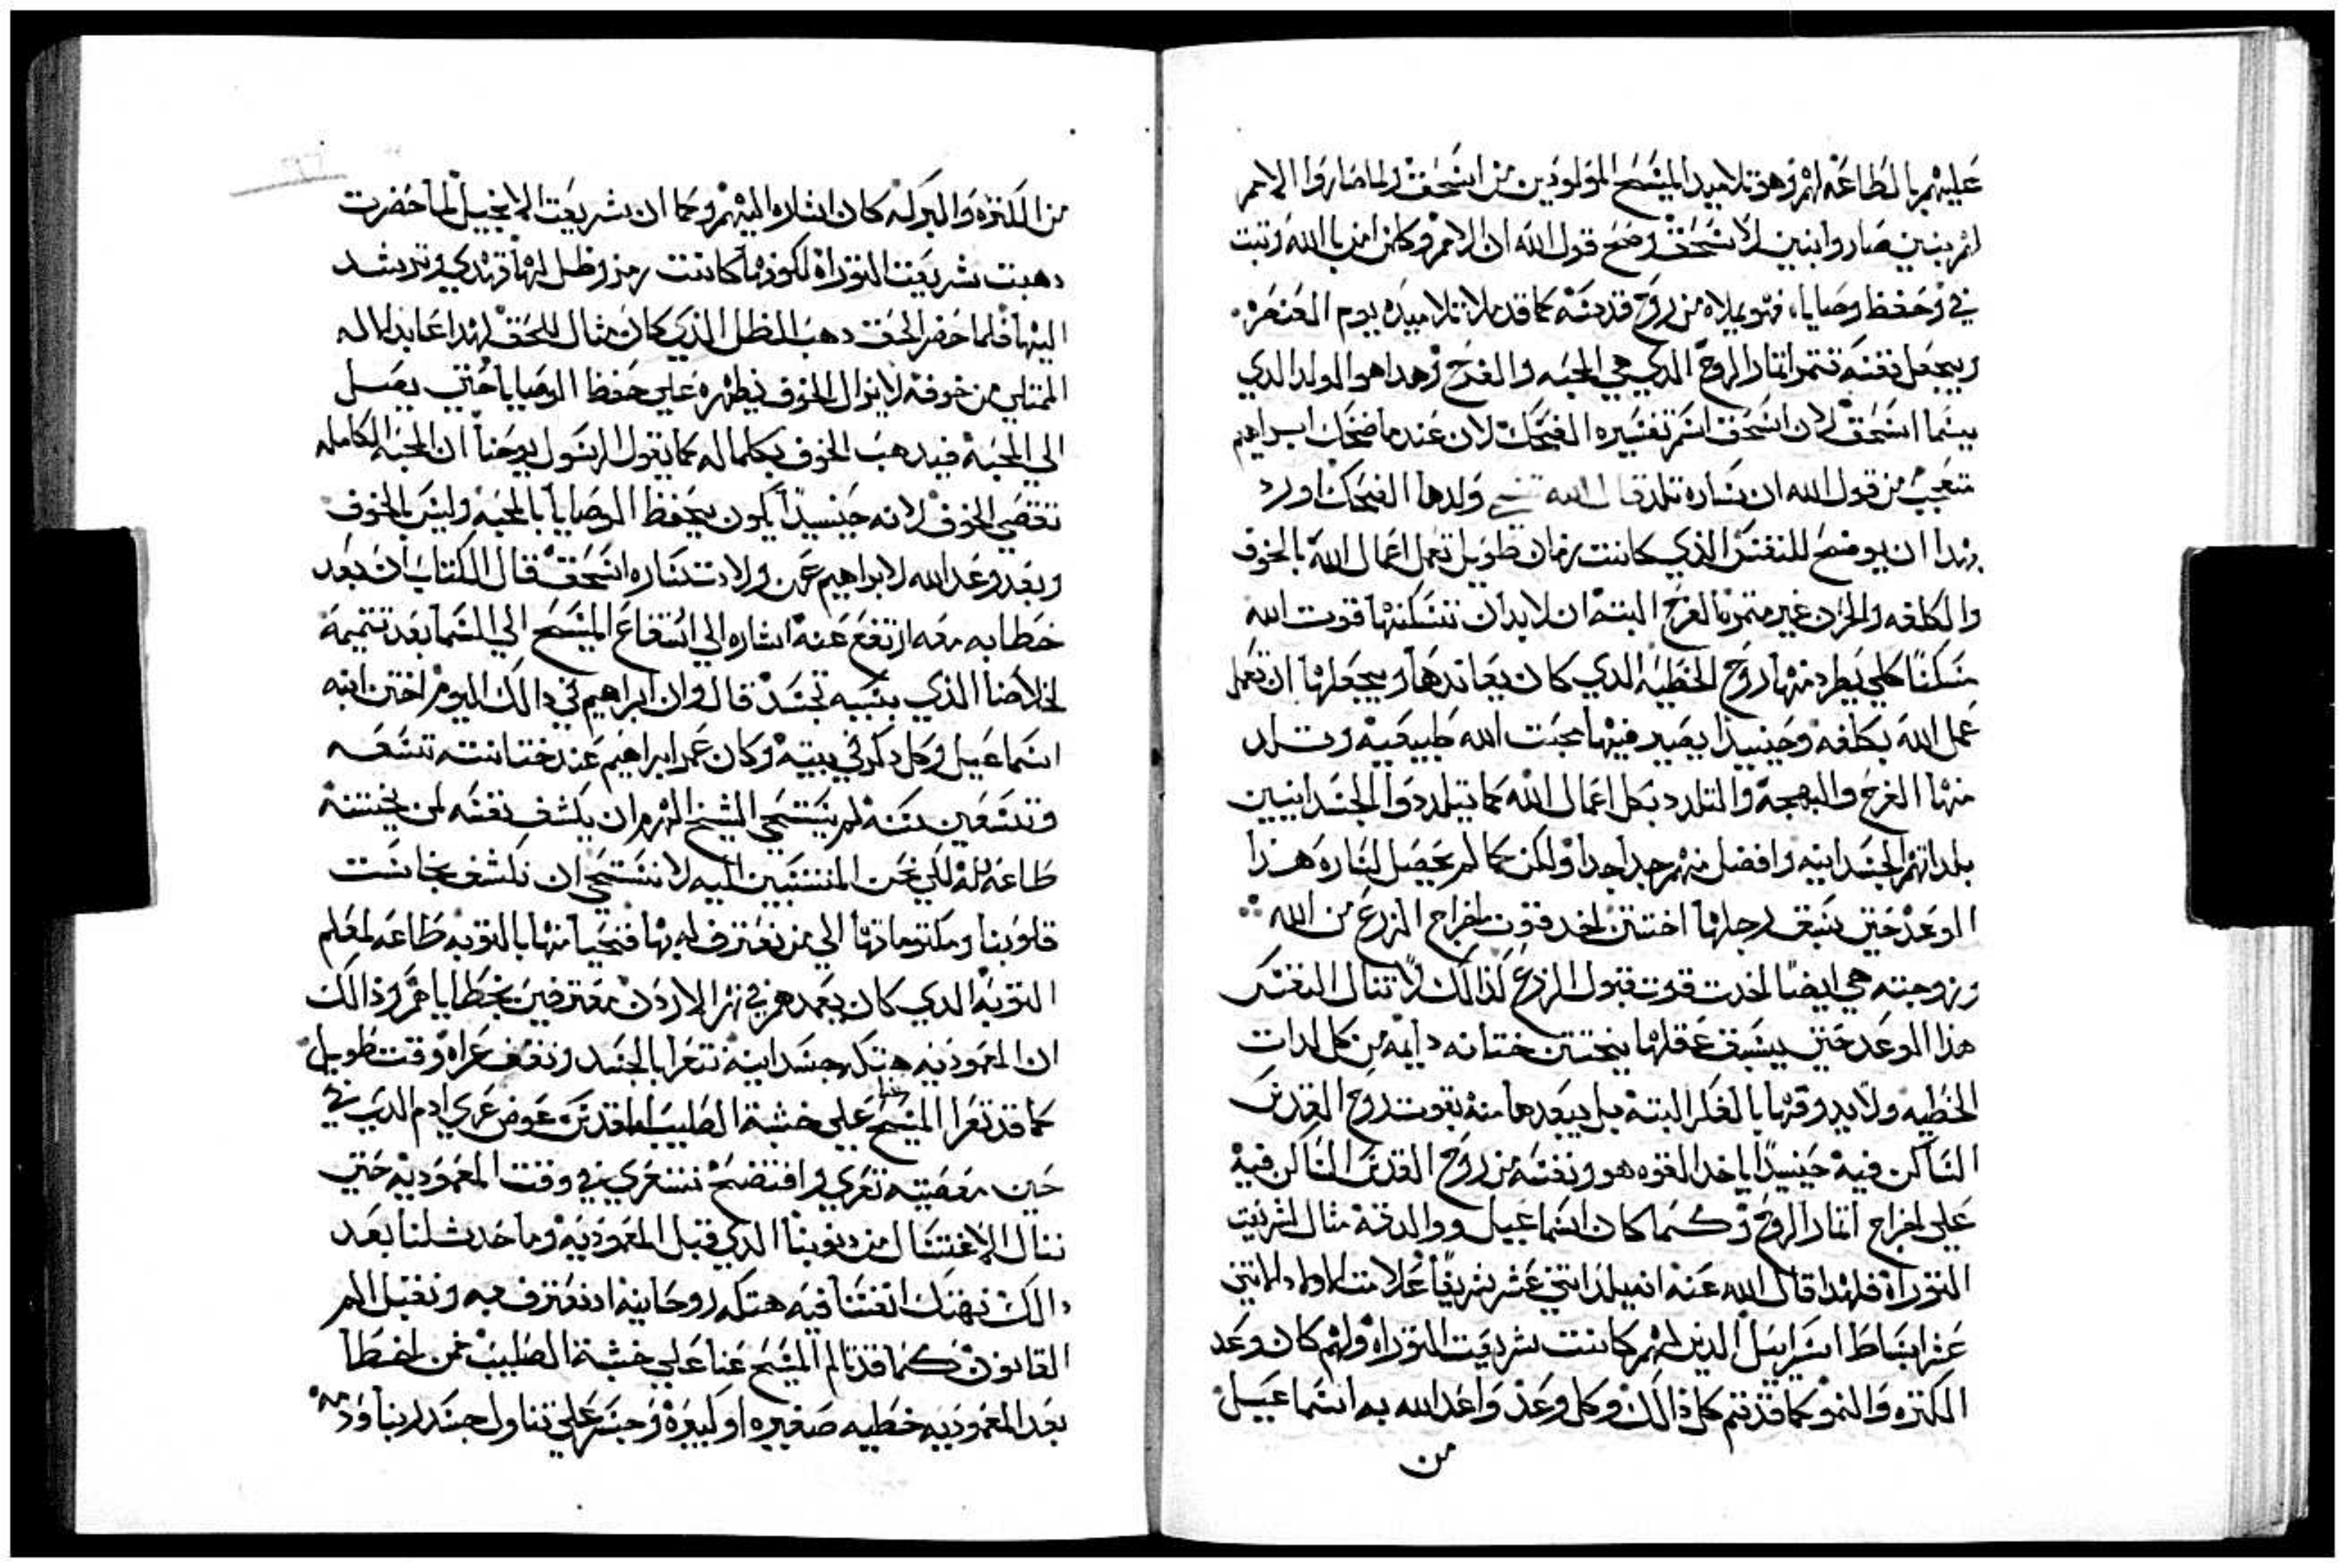 عليهم بالطاعه لهم وهو تلاميد المسيح المولودين من اسحق ولما صاروا الامم
لهم بنين صاروا بنين لاسحق وصح قول الله ان الامم وكلمن امن بالله وتبت
في وحفظ وصايا، فهو يملاه من روح قدسه كما قد ملا تلاميده يوم العنصره.
ويجعل نفسه تتمر اتمار الروح الدي هي المحبه والفرح وهدا هو الولد الدي
بينما اسحق لان اسحق اسم تفسيره الضحك لان عندما ضحك ابراهيم
متعجب من قول الله ان ساره تلد قال الله ولدها الضحك اورد
بهدا ان يوضح للنفس الذي كانت زمان طويل تعمل اعمال الله بالخوف
والكلفه والحزن غير متمره الفرح البته ان لابدان تسكنها قوت الله
مسكنًا كلي يطرد منها روح الخطيه الدي كان يعاندها ويجعلها ان تعمل
عمل الله بكلفه وحينيدا يصير فيها محبت الله طبيعيه وتلد
منها الفرح والبهجه والتلدد بكل اعمال الله كما تيلددوا الجسدانيين
بلداتهم الجسدانيه وافضل منهم جدا جدا ولكن كما لم يحصل لساره هذا
الوعد حتي يسبق رجلها اختتن اخد قوت اخراج الزرع من الله
وزوجته هي ايضًا اخدت قوت قبول الزرع كذالك لا تنال النفس
هذا الوعد حتي يسبق عقلها يختتن ختانه دايمه من كل لدات
الخطيه ولا يدوقها بالفكر البته بل يبعدها منه بقوت روح القدس
الساكن فيه حينيدًا ياخد القوه هو ونفسه من روح القدس الساكن فيه
علي اخراج اتمار الروح وكما كان اسماعيل ووالدته مثال لشريعت
التوراة فلهدا قال الله عنه انه يلد اتني عشر شريفًا علامت الاولاد الاتني
عشر اسباط اسراييل الدين لهم كانت شريعت التوراة ولهم كان وعد
الكتره والنمو كما قد تم كل ذالك وكل وعد واعد الله به اسماعيل
من
من الكتره والبركه كان اشاره اليهم وكما ان شريعت الانجيل لما حضرت
دهبت شريعت التوراة لكونها كانت رمز وظل لها تهدي وترشد
اليها فلما حضر الحق دهب الظل الذي كان مثال للحق لهدا عابد الاله
الممتلي من خوفه لايزال الخوف يطهره علي حفظ الوصايا حتي يصل
الي المحبه فيدهب الخوف بكماله كما يقول الرسول يوحنا ان المحبه الكامله
تقصي الخوف لانه حينيدًا يكون يحفظ الوصايا بالمحبه وليس بالخوف
وبعد وعد الله لابراهيم عن ولادت ساره اسحق قال الكتاب ان بعد
خطابه معه ارتفع عنه اشاره الي ارتفاع المسيح الي السما بعد تتميمه
لخلاصنا الذي بسببه تجسد قال وان ابراهيم في دالك اليوم اختن ابنه
اسماعيل وكل دكر في بيته وكان عمر ابراهيم عند ختانته تسعه
وتسعين سنه لم يستحي الشيخ الهرم ان يكشف نفسه لمن يختنه
طاعه لله لكي نحن المنتسبين اليه لا نستحي ان نكشف نجاست
قلوبنا ومكتوماتها الي من نعترف له بها فنحيا منها بالتوبه طاعه لمعلم
التوبه الدي كان يعمدهم في نهر الاردن معترفين بخطاياهم وذالك
ان المعموديه هتكه جسدانيه نتعرا بالجسد ونقف عراه وقت طويل
كما قد تعرا المسيح علي خشبة الصليب عوض عري ادم الدي في
حين معصيته تعري وافتضح نتعري في وقت المعموديه حتي
ننال الاغتسال من دنوبنا الدي قبل المعموديه وما حدث لنا بعد
دالك نهتك انفسنا فيه هتكه روحانيه ادنعترف به ونقبل الم
القانون كما قد تالم المسيح عنا علي خشبة الصليب فمن اخطا
بعد المعموديه خطيه صغيره او كبيره وجسر علي تناول جسد ربنا ودمه